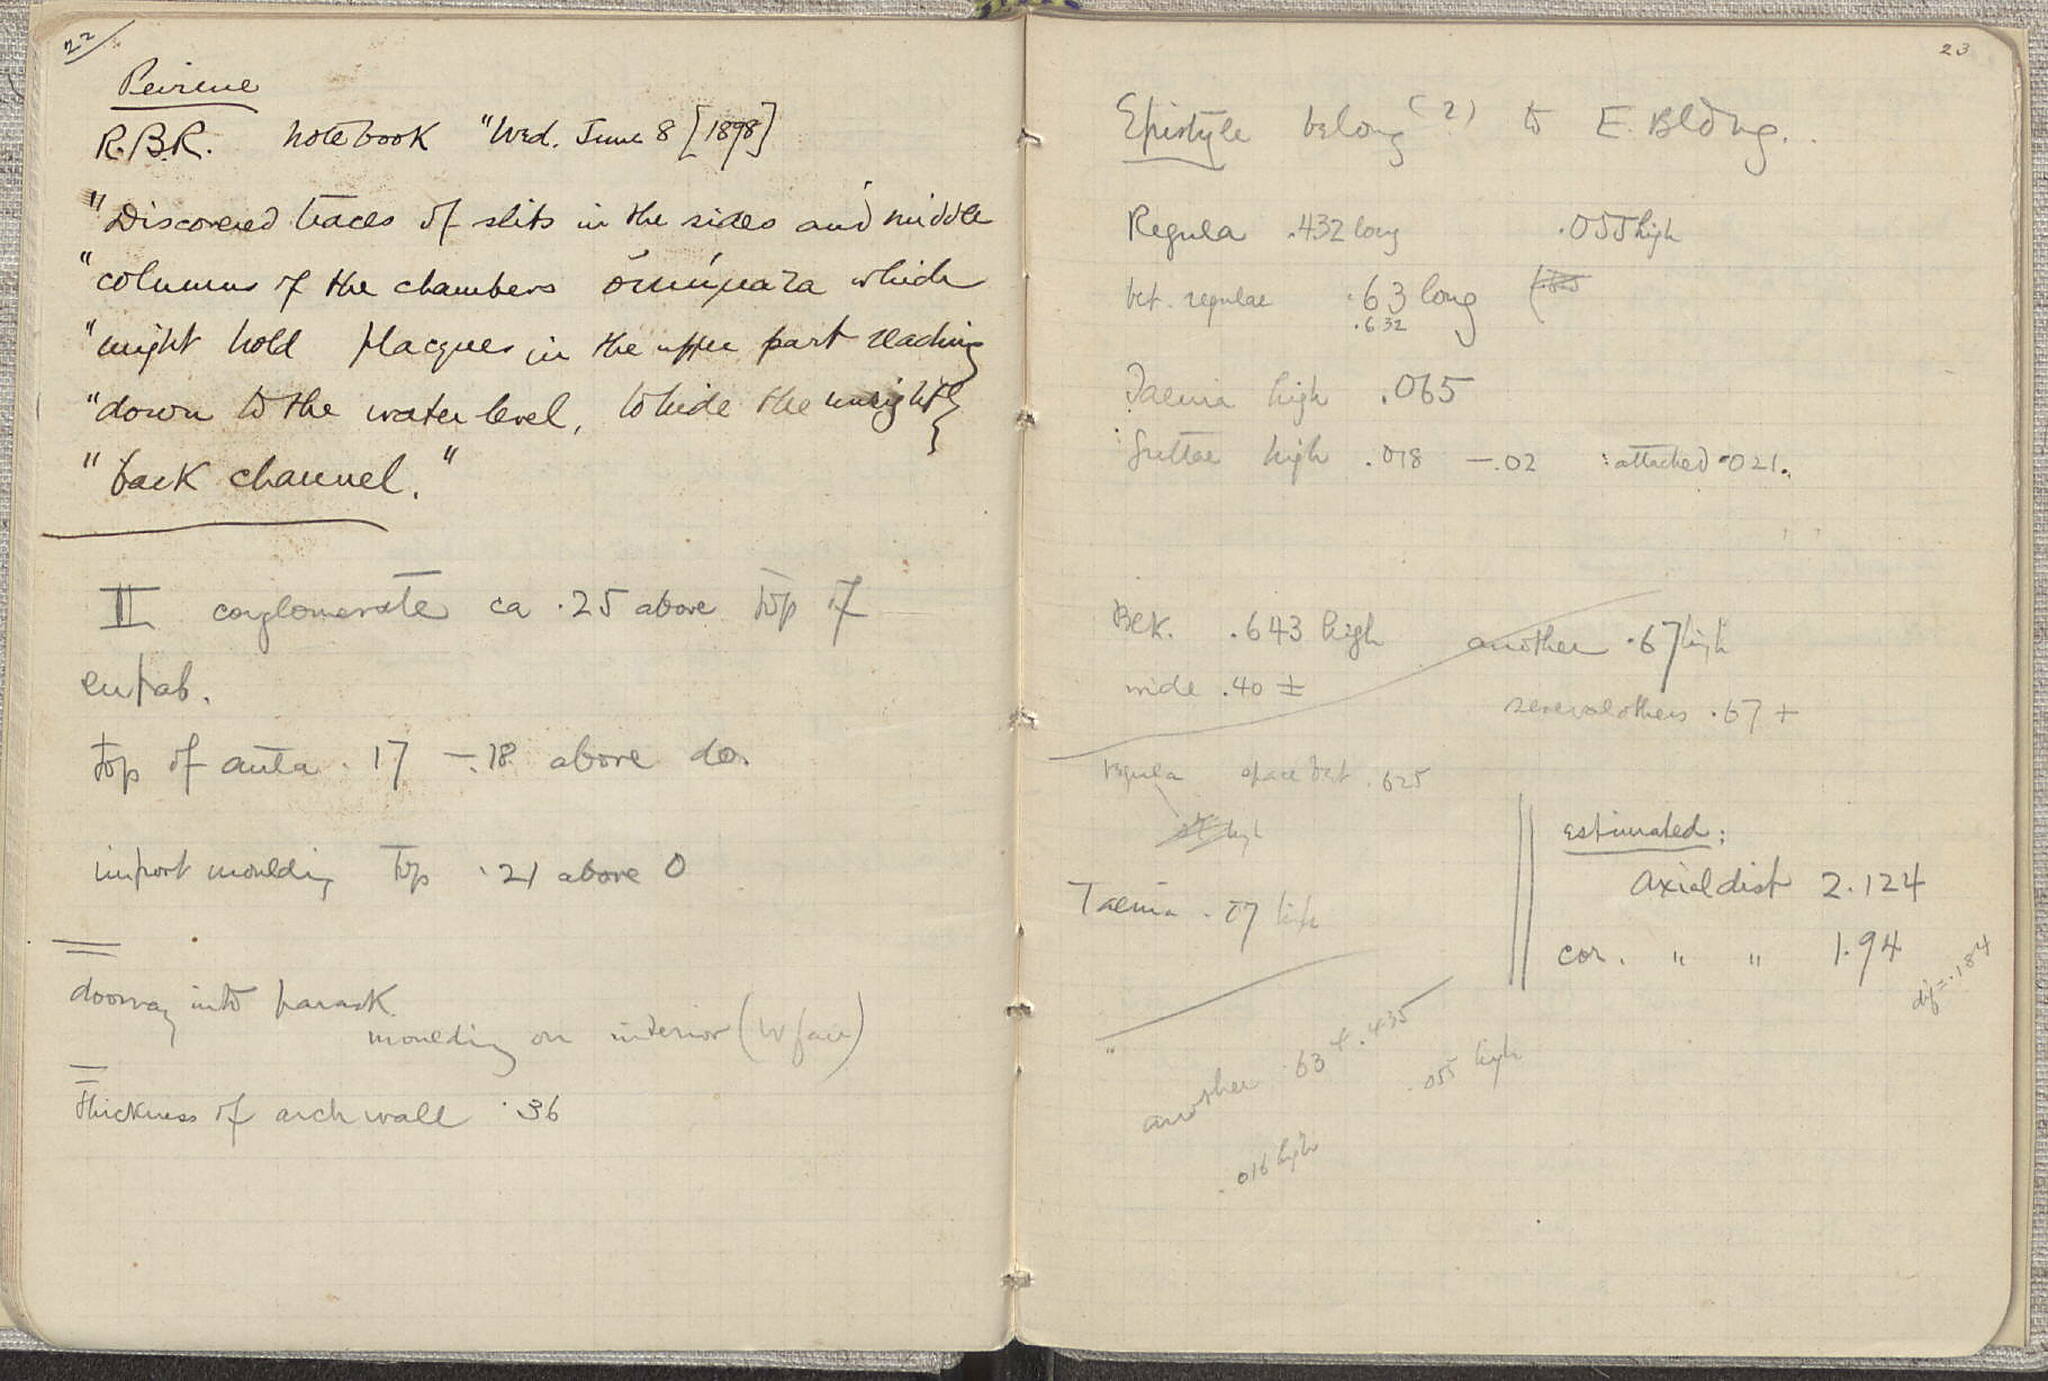 22
Peirene
R.B.R. notebook "Wed. June 8 [1898]
"Discovered traces of slits in the sides and middle
"columns of the chambers which
"might hold placques in the upper part reaching
"down to the water level, to hide the unsightly
"back channel."
II conglomerate ca .25 above top of
entab.
top of anta .17 – .18 above do.
impost moulding top .21 above 0
doorway into parask.
moulding on interior (W face)
thickness of arch wall .36
23
Epistyle belong (?) to E. Bldng.
Regula .432 long .055 high
bet. regulae .63 long
.632
Taenia high .065
Guttae high .018 – .02 : attached .021.
Bck. .643 high another .67 high
wide .40 ± several others .67 +
regula space bet .625
high
Taenia .07 high
estimated:
Axial dist 2.124
cor. " " 1.94
dif = .184
another .63 + .435
.055 high
.016 high